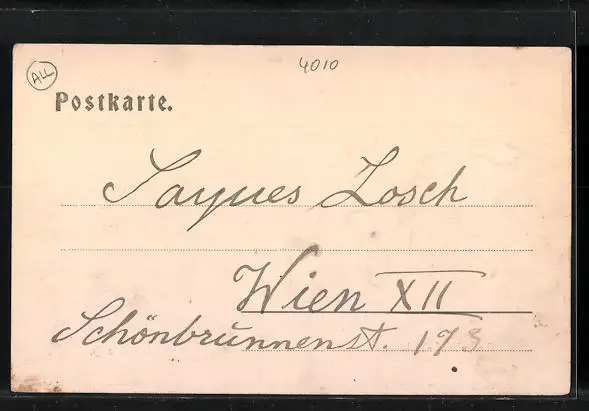 ALL
4010
Postkarte.
Jaques Zosch
Wien XII
Schönbrunnenst. 173